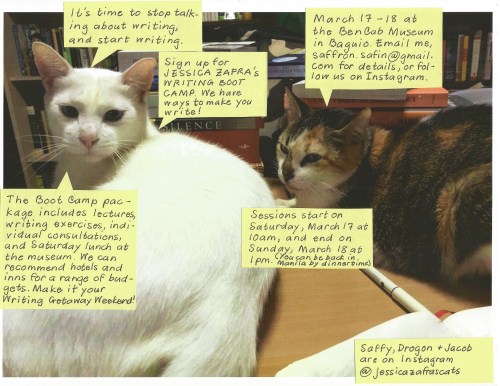 It's time to stop talk-
ing about writing,
and start writing.
Sign up for
JESSICA ZAFRA'S
WRITING BOOT
CAMP. We have
ways to make you
write!
March 17-18 at
the BenCab Museum
in Baguio. Email me,
saffron.safin@gmail.
com for details, or fol-
low us on Instagram.
SILENCE
The Boot Camp pac-
kage includes lectures,
writing exercises, indi-
vidual consultations,
and Saturday lunch at
the museum. We can
recommend hotels and
inns for a range of bud-
gets. Make it your
Writing Getaway Weekend!
Sessions start on
Saturday, March 17 at
10am, and end on
Sunday, March 18 at
1pm. (You can be back in
Manila by dinnertime)
Saffy, Drogon + Jacob
are on Instagram
@jessicazafrascats